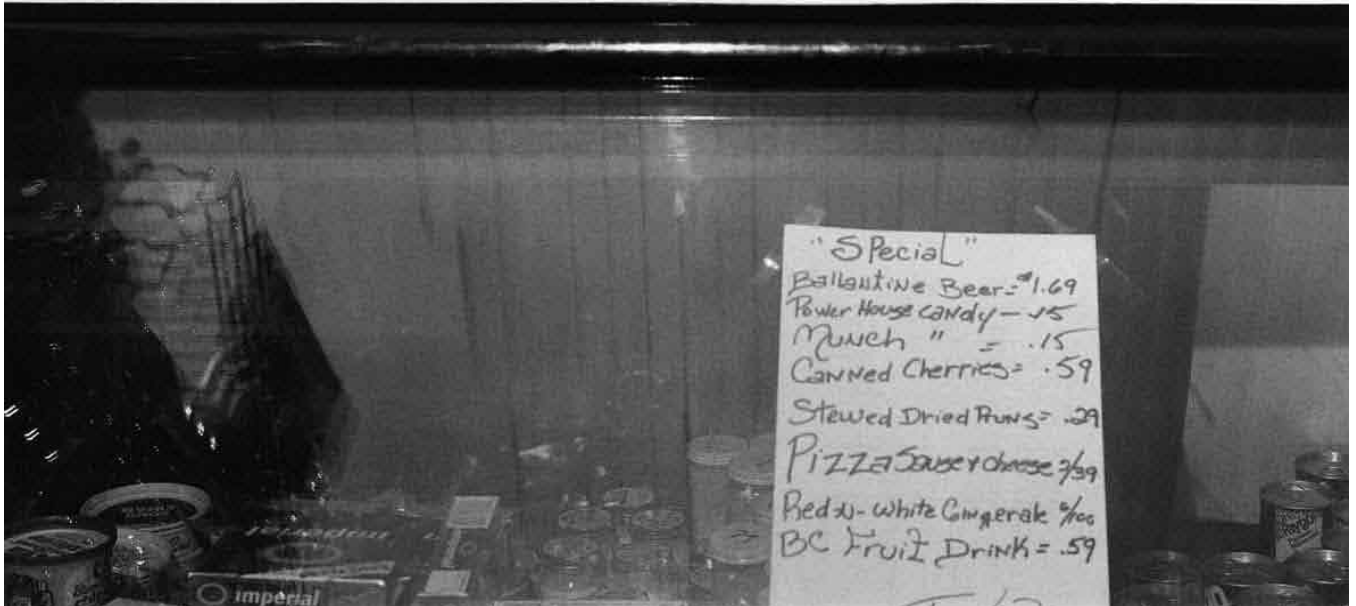 "Special"
Ballantine Beer = $1.69
Power House candy - .15
Munch " = .15
Canned Cherries = .59
Stewed Dried Pruns = .29
Pizza Sause & cheese /39
Red-N-White Gingerale /1.00
BC Fruit Drink = .59
imperial